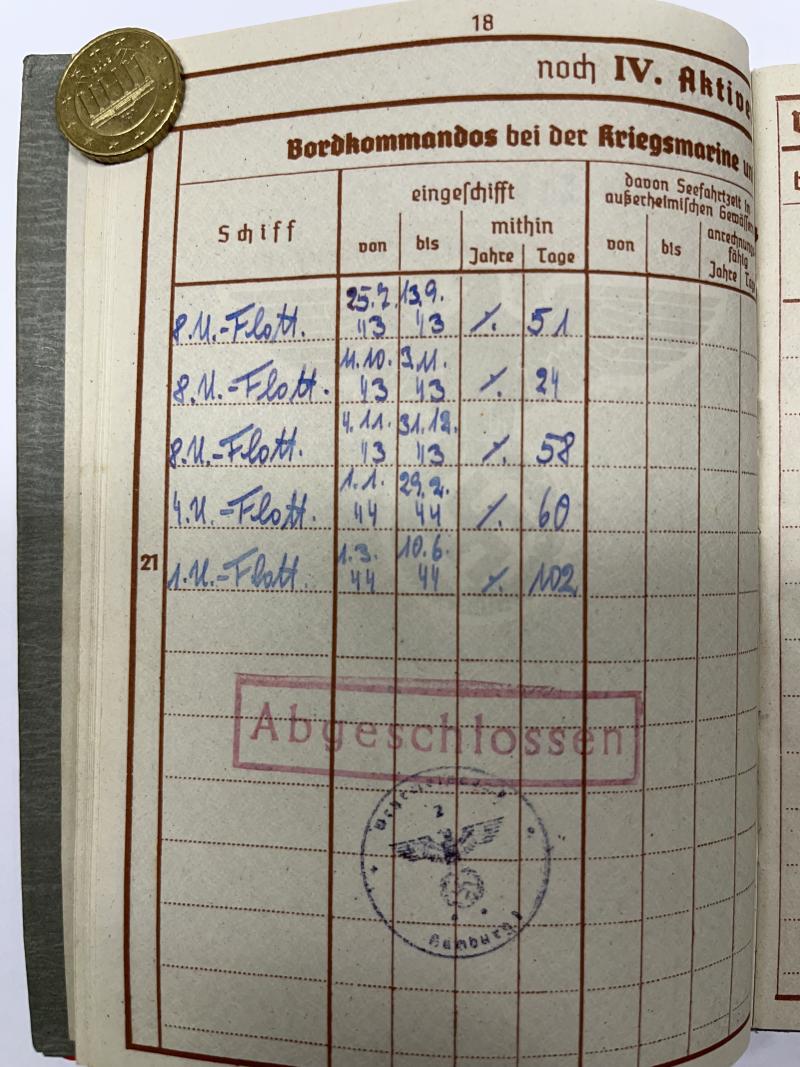 18
noch IV. Aktive
Bordkommandos bei der Kriegsmarine un
Schiff
eingeschifft
davon Seefahrtzeit in
außerheimischen Gewässern
von
bis
mithin
Jahre
Tage
von
bis
anrechnungs
fähig
Jahre
Tag
8.U.-Flott.
25.7.
43
13.9.
43
%.
51
8.U.-Flott.
11.10.
43
3.11.
43
%.
24
8.U.-Flott.
4.11.
43
31.12.
43
%.
58
4.U.-Flott.
1.1.
44
29.2.
44
%.
60
21
1.U.-Flott.
1.3.
44
10.6.
44
%.
102
Abgeschlossen
2
Hamburg